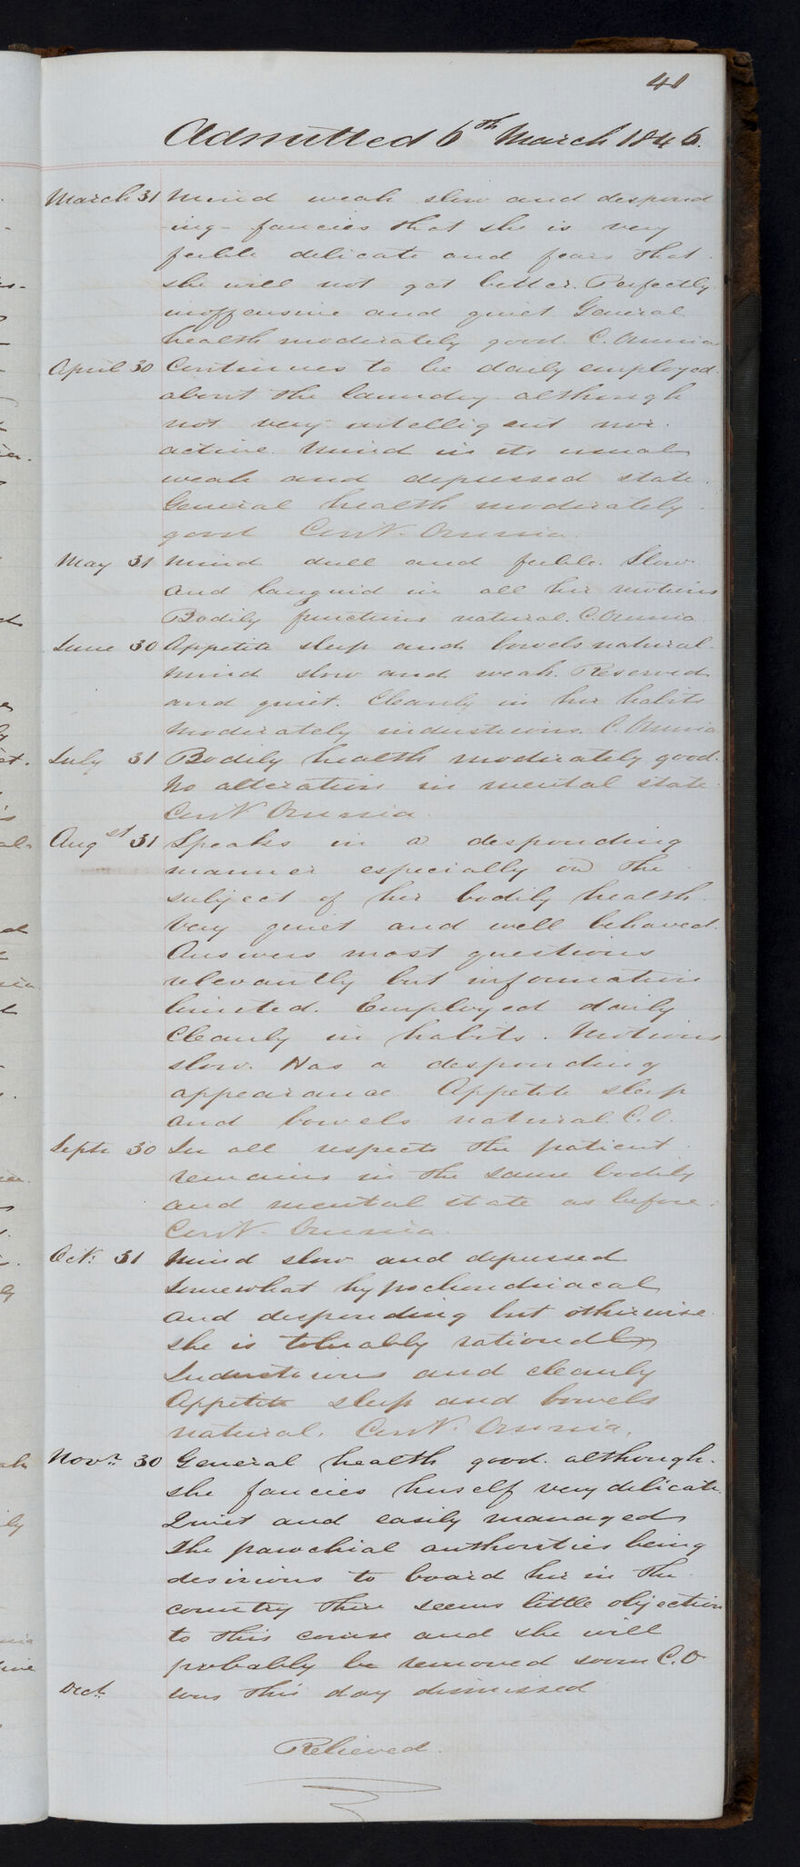 41
Admitted 6th March 1846.
March 31 Mind weak slow and despond
ing - fancies that she is very
feeble delicate and fears that
she will not get better. Perfectly
inoffensive and quiet General
health moderately good. C. Omnia
April 30 Continues to be daily employed
about the laundry although
not very intelligent nor
active. Mind in its usual
weak and depressed state.
General health moderately
good Cont. Omnia.
May 31 Mind dull and feeble. Slow
and languid in all her motions
Bodily functions natural. C. Omnia
June 30 Appetite sleep and bowels natural.
Mind slow and weak. Reserved
and quiet. Cleanly in her habits
Moderately industrious. C. Omnia
July 31 Bodily health moderately good.
No alteration in mental state
Cont Omnia.
Augst 31 Speaks in a desponding
manner especially on the
subject of her bodily health.
Very quiet and well behaved.
Answers most questions
relevantly but information
limited. Employed daily
Cleanly in habits. Motions
slow. Has a desponding
appearance Appetite sleep
and bowels natural. C.O.
Septr 30 In all respects the patient
remains in the same bodily
and mental state as before.
Cont. Omnia.
Oct. 31 Mind slow and depressed
Somewhat hypochondriacal
and desponding but otherwise
she is tolerably rational
Industrious and cleanly
Appetite sleep and bowels
natural. Cont. Omnia.
Novr. 30 General health good. although
she fancies herself very delicate.
Quiet and easily managed
The parochial authorities being
desirious to board her in the
country there seems little objection
to this course and she will
probably be removed soon C.O
Decr. was this day dismissed
Relieved.